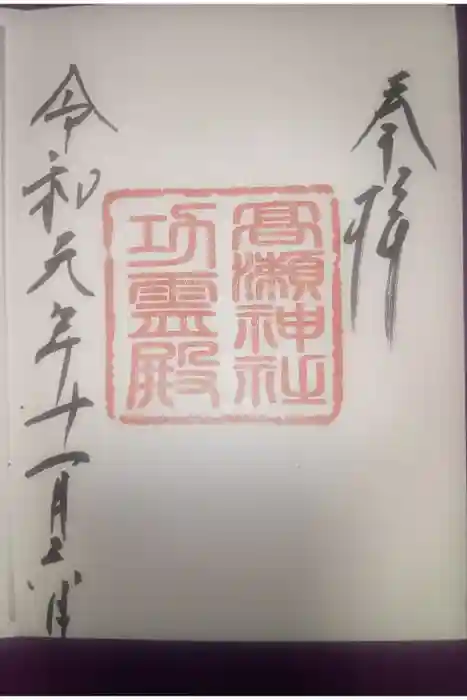 奉拝
髙瀬神社
功霊殿
令和元年十一月